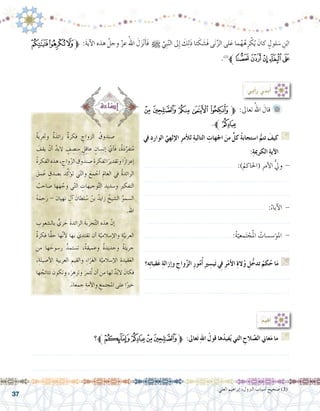 ابْنِ سَلولٍ كَانَ يُكْرِهُهُمَا عَلى الزِّنَى، فَشَكَتَا ذَلِكَ إِلَى النَّبِيِّ ﷺ فَأَنْزَلَ اللهُ عزَّ وجلَّ هذه الآيةَ: ﴿ وَلَا تُكْرِهُوا فَتَيَاتِكُمْ
عَلَى الْبِغَاءِ إِنْ أَرَدْنَ تَحَصُّنًا ﴾(3).
أبدي رأيي
قال اللهُ تعالى: ﴿ وَأَنكِحُوا الْأَيَامَى مِنكُمْ وَالصَّالِحِينَ مِنْ
عِبَادِكُمْ ﴾
كيفَ تتمُّ استجابةُ كلٍّ منَ الجهاتِ التاليةِ للأمرِ الإلهيِّ الواردِ في
الآيةِ الكريمةِ:
- وليُّ الأمرِ (الحاكمُ):
- الآباءُ:
- المؤسساتُ المجتمعيَّةُ:
ما حُكْمُ تدخُّلِ وُلاةِ الأمرِ في تيسيرِ أمورِ الزَّواجِ وإزالةِ عقباتِهِ؟
إضاءة
صندوقُ الزواجِ فكرةٌ رائدةٌ وتجربةٌ
متفرِّدةٌ، فأيُّ إنسانٍ عاقلٍ منصفٍ لابدَّ أنْ يقفَ
إعزازًا وتقديرًا لفكرةِ صندوقِ الزَّواجِ، هذه الفكرةُ
الرائدةُ في العالمِ أجمعَ والَّتي تؤكِّد بصدقٍ عمقَ
التفكيرِ وسديدَ التَّوجيهاتِ الَّتي وجَّهَ بها صاحبُ
السموِّ الشيخُ زايدُ بنُ سلطانَ آلِ نهيانَ - رحمَهُ
اللهُ.
إنَّ هذه التَّجربةَ الرائدةَ حريٌّ بالشعوبِ
العربيَّةِ والإسلاميَّةِ أنْ تقتديَ بها لأنَّها حقًّا فكرةٌ
جريئةٌ وجديدةٌ وعميقةٌ، تستمدُّ رسوخَها من
العقيدةِ الإسلاميَّةِ الغراءِ والقيمِ العربيةِ الأصيلةِ،
فكانَ لابدَّ لها من أنْ تثمرَ وتزهرَ، وتكونَ نتائجُها
خيرًا على المجتمعِ والأمةِ جمعاءَ.
أفهم
ما معاني الصَّلاحِ التي يُفيدُها قولُ اللهِ تعالى: ﴿ وَالصَّالِحِينَ مِنْ عِبَادِكُمْ وَإِمَائِكُمْ ﴾؟
(3) صحيح أسباب النزول، إبراهيم العلي.
37